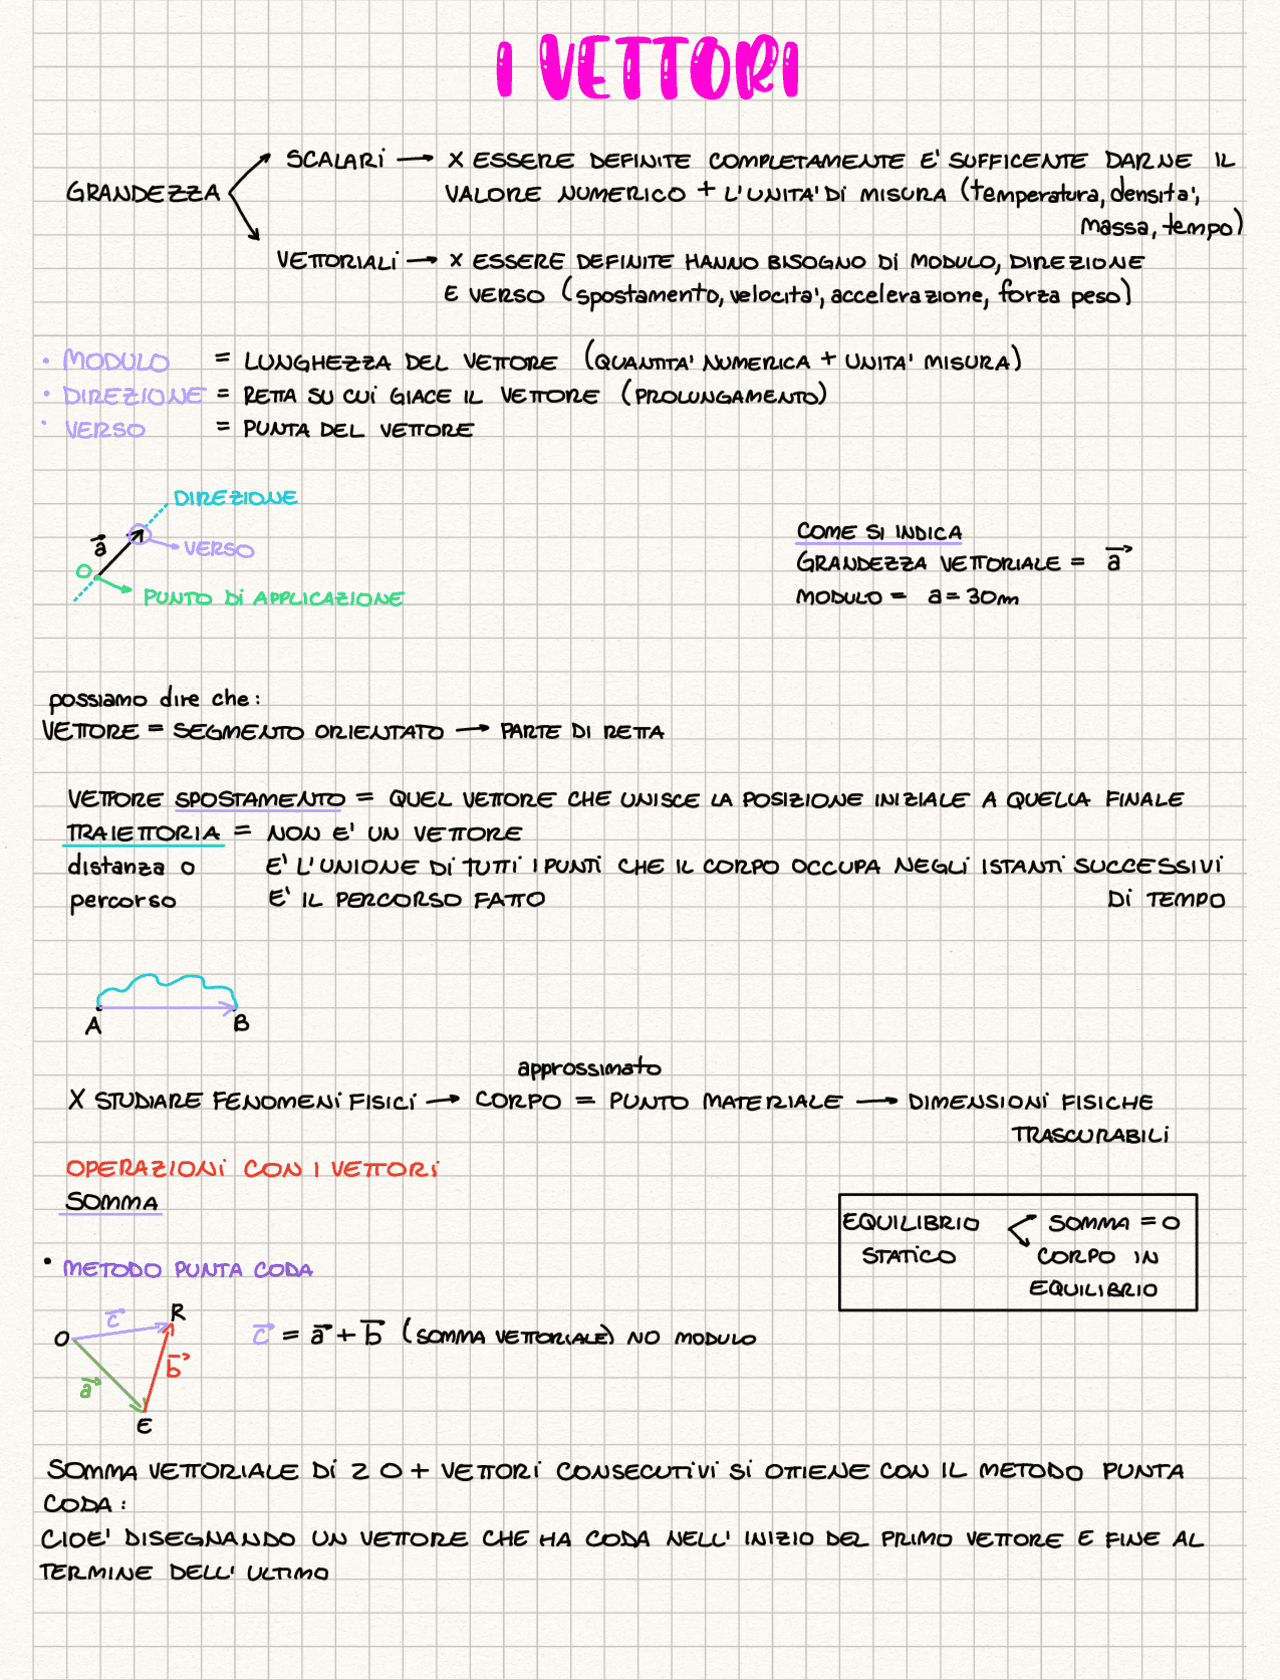 I VETTORI
SCALARI → X ESSERE DEFINITE COMPLETAMENTE E' SUFFICENTE DARNE IL
GRANDEZZA VALORE NUMERICO + L'UNITA' DI MISURA (temperatura, densita',
massa, tempo)
VETTORIALI → X ESSERE DEFINITE HANNO BISOGNO DI MODULO, DIREZIONE
E VERSO (spostamento, velocita', accelerazione, forza peso)
• MODULO = LUNGHEZZA DEL VETTORE (QUANTITA' NUMERICA + UNITA' MISURA)
• DIREZIONE = RETTA SU CUI GIACE IL VETTORE (PROLUNGAMENTO)
• VERSO = PUNTA DEL VETTORE
DIREZIONE
a⃗
VERSO
O
PUNTO DI APPLICAZIONE
COME SI INDICA
GRANDEZZA VETTORIALE = a⃗
MODULO = a = 30m
possiamo dire che:
VETTORE = SEGMENTO ORIENTATO → PARTE DI RETTA
VETTORE SPOSTAMENTO = QUEL VETTORE CHE UNISCE LA POSIZIONE INIZIALE A QUELLA FINALE
TRAIETTORIA = NON E' UN VETTORE
distanza o E' L'UNIONE DI TUTTI I PUNTI CHE IL CORPO OCCUPA NEGLI ISTANTI SUCCESSIVI
percorso E' IL PERCORSO FATTO DI TEMPO
A B
approssimato
X STUDIARE FENOMENI FISICI → CORPO = PUNTO MATERIALE → DIMENSIONI FISICHE
TRASCURABILI
OPERAZIONI CON I VETTORI
SOMMA
EQUILIBRIO SOMMA = 0
STATICO CORPO IN
EQUILIBRIO
• METODO PUNTA CODA
c⃗ R
O
c⃗ = a⃗ + b⃗ (SOMMA VETTORIALE) NO MODULO
b⃗
a⃗
E
SOMMA VETTORIALE DI 2 O + VETTORI CONSECUTIVI SI OTTIENE CON IL METODO PUNTA
CODA:
CIOE' DISEGNANDO UN VETTORE CHE HA CODA NELL' INIZIO DEL PRIMO VETTORE E FINE AL
TERMINE DELL' ULTIMO